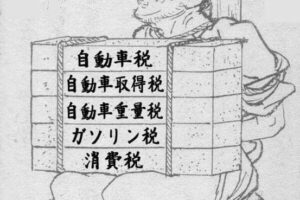 自動車税
自動車取得税
自動車重量税
ガソリン税
消費税